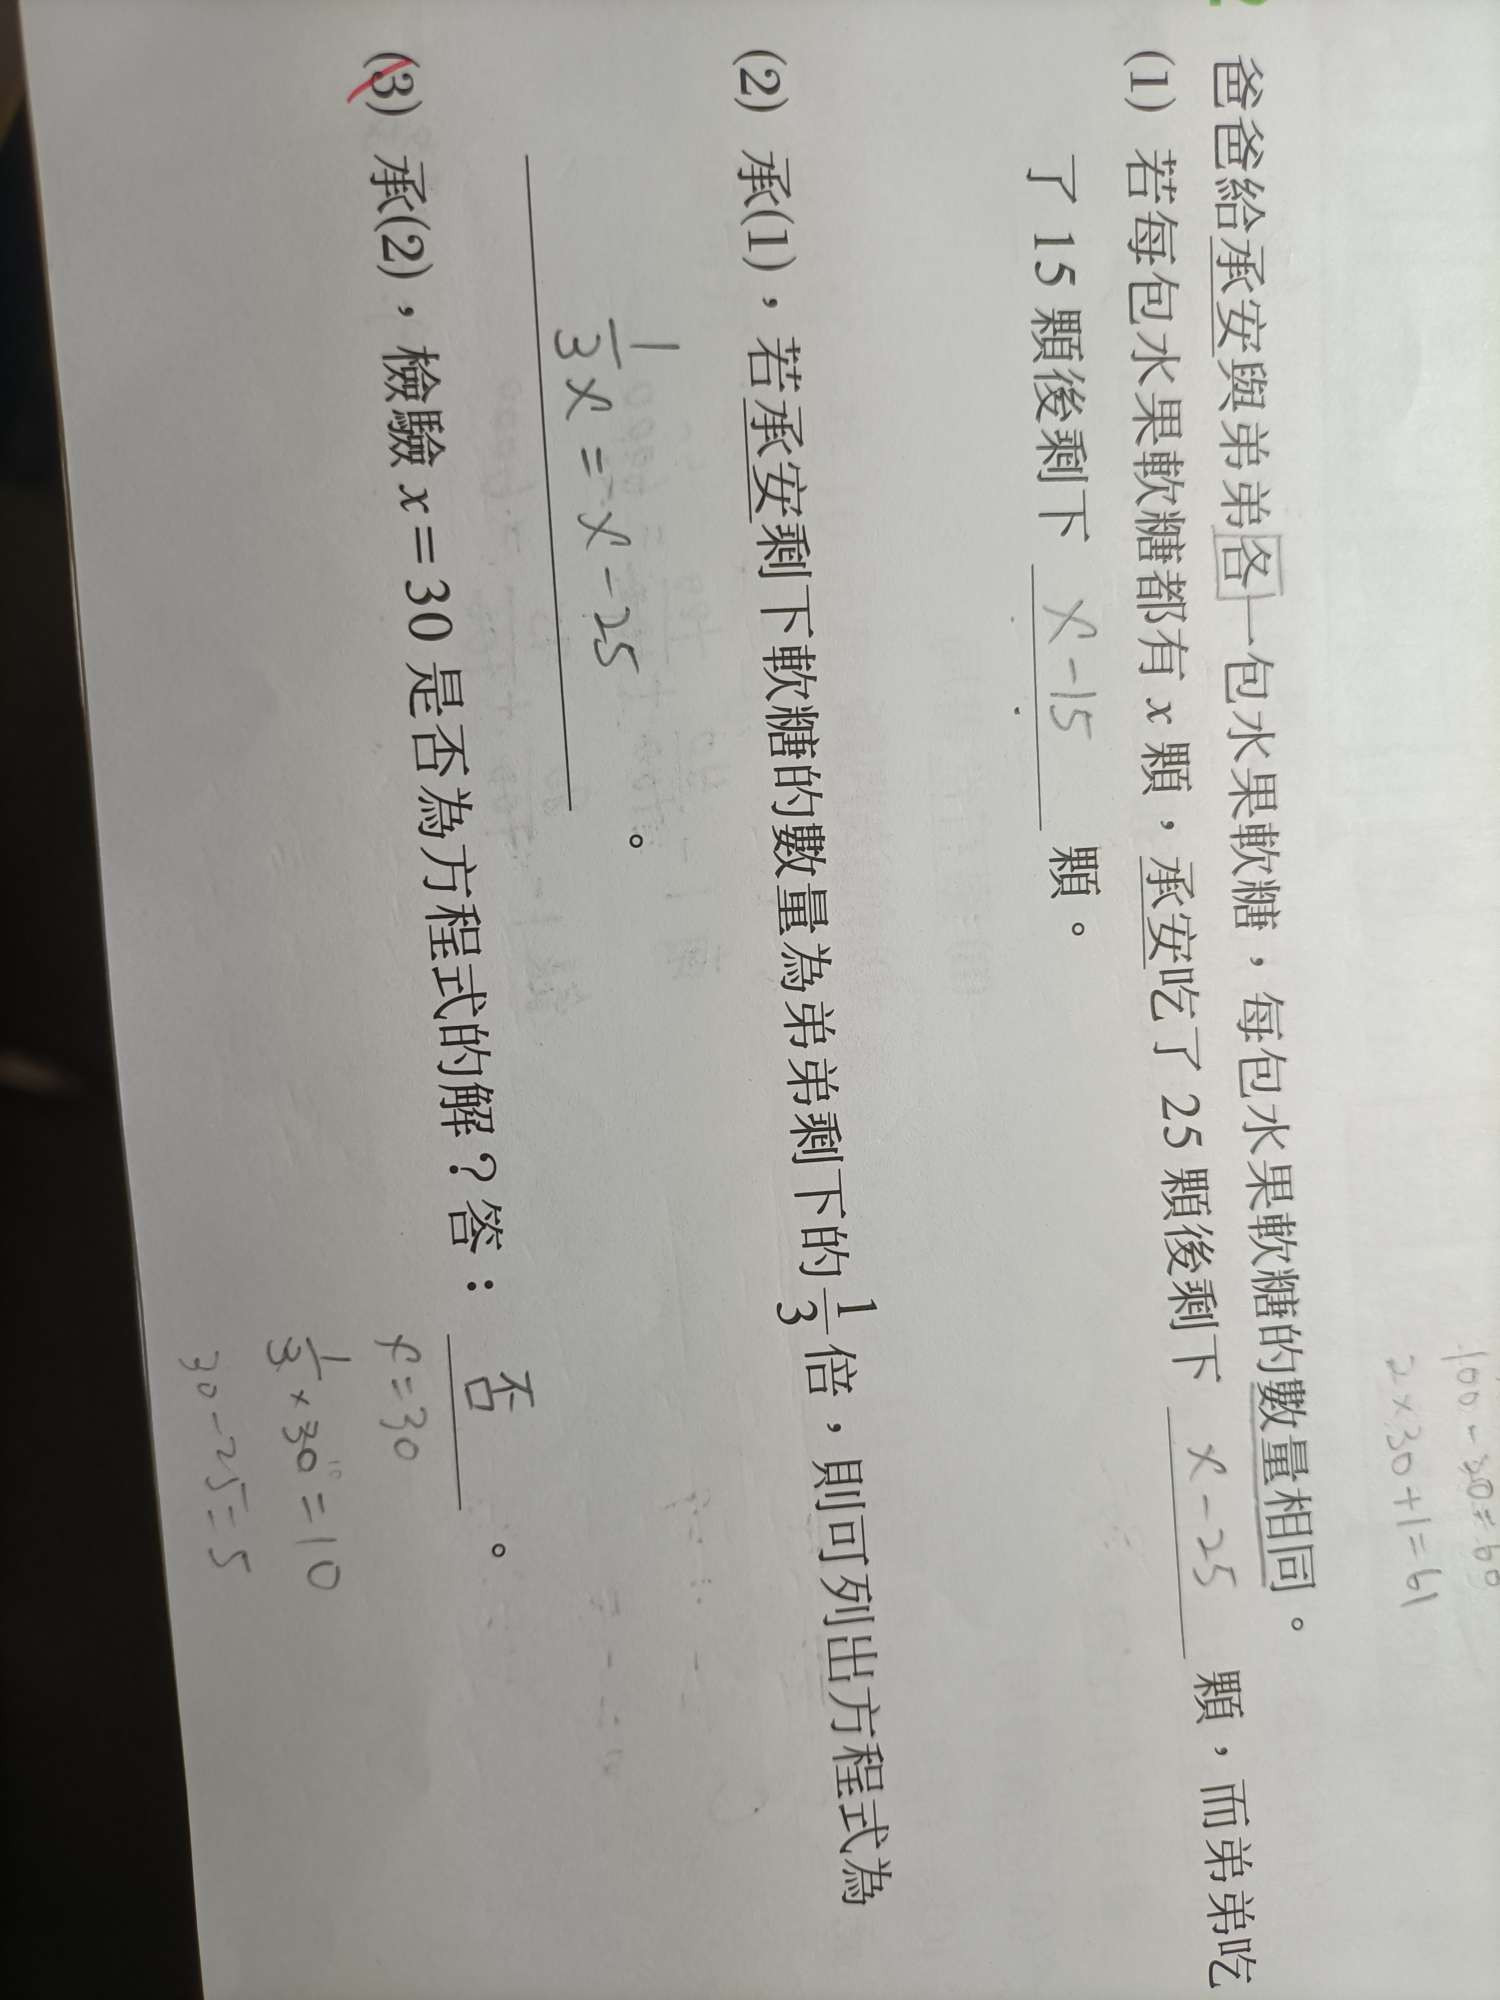 100-30=60
2×30+1=61
爸爸給承安與弟弟各一包水果軟糖，每包水果軟糖的數量相同。
(1) 若每包水果軟糖都有 x 顆，承安吃了 25 顆後剩下 x-25 顆，而弟弟吃
了 15 顆後剩下 x-15 顆。
(2) 承(1)，若承安剩下軟糖的數量為弟弟剩下的 1/3 倍，則可列出方程式為
1/3 x = x-25 。
(3) 承(2)，檢驗 x=30 是否為方程式的解？答： 否 。
x=30
1/3 × 30 10 = 10
30-25=5